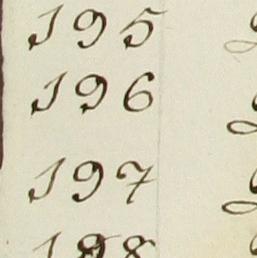 195
196
197
198